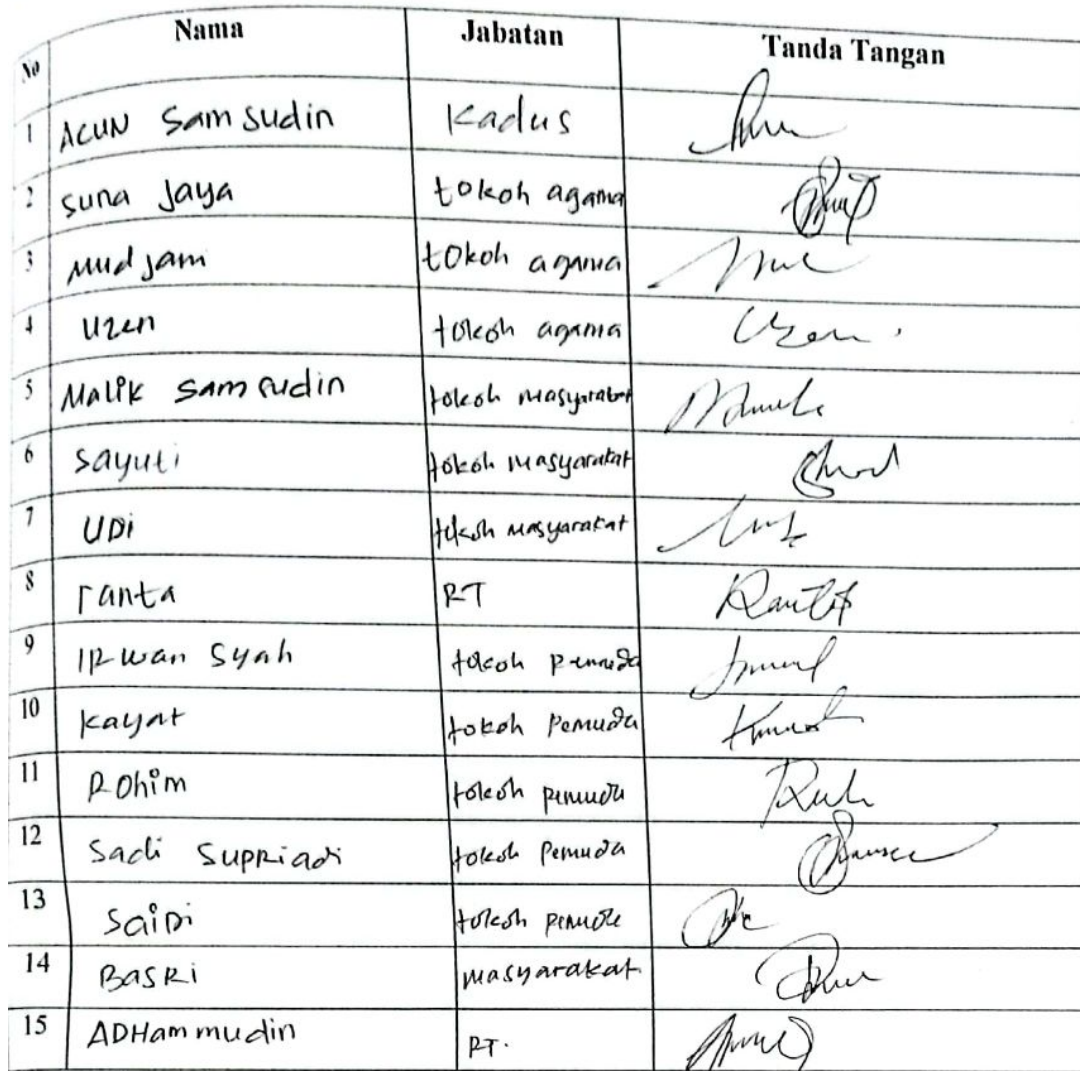 No Nama Jabatan Tanda Tangan
1 ACUN Samsudin Kadus
2 suna Jaya tokoh agama
3 Mudjami tokoh agama
4 Uzen tokoh agama Uzen
5 Malik Samsudin tokoh masyarakat
6 Sayuti tokoh masyarakat
7 UDi tokoh masyarakat
8 ranta RT
9 IRwan Syah tokoh pemuda
10 kayat tokoh Pemuda
11 ROhim tokoh pemuda
12 Sadi SuPRiadi tokoh Pemuda
13 SaiDi tokoh pemuda
14 BASRi masyarakat
15 ADHammudin RT.